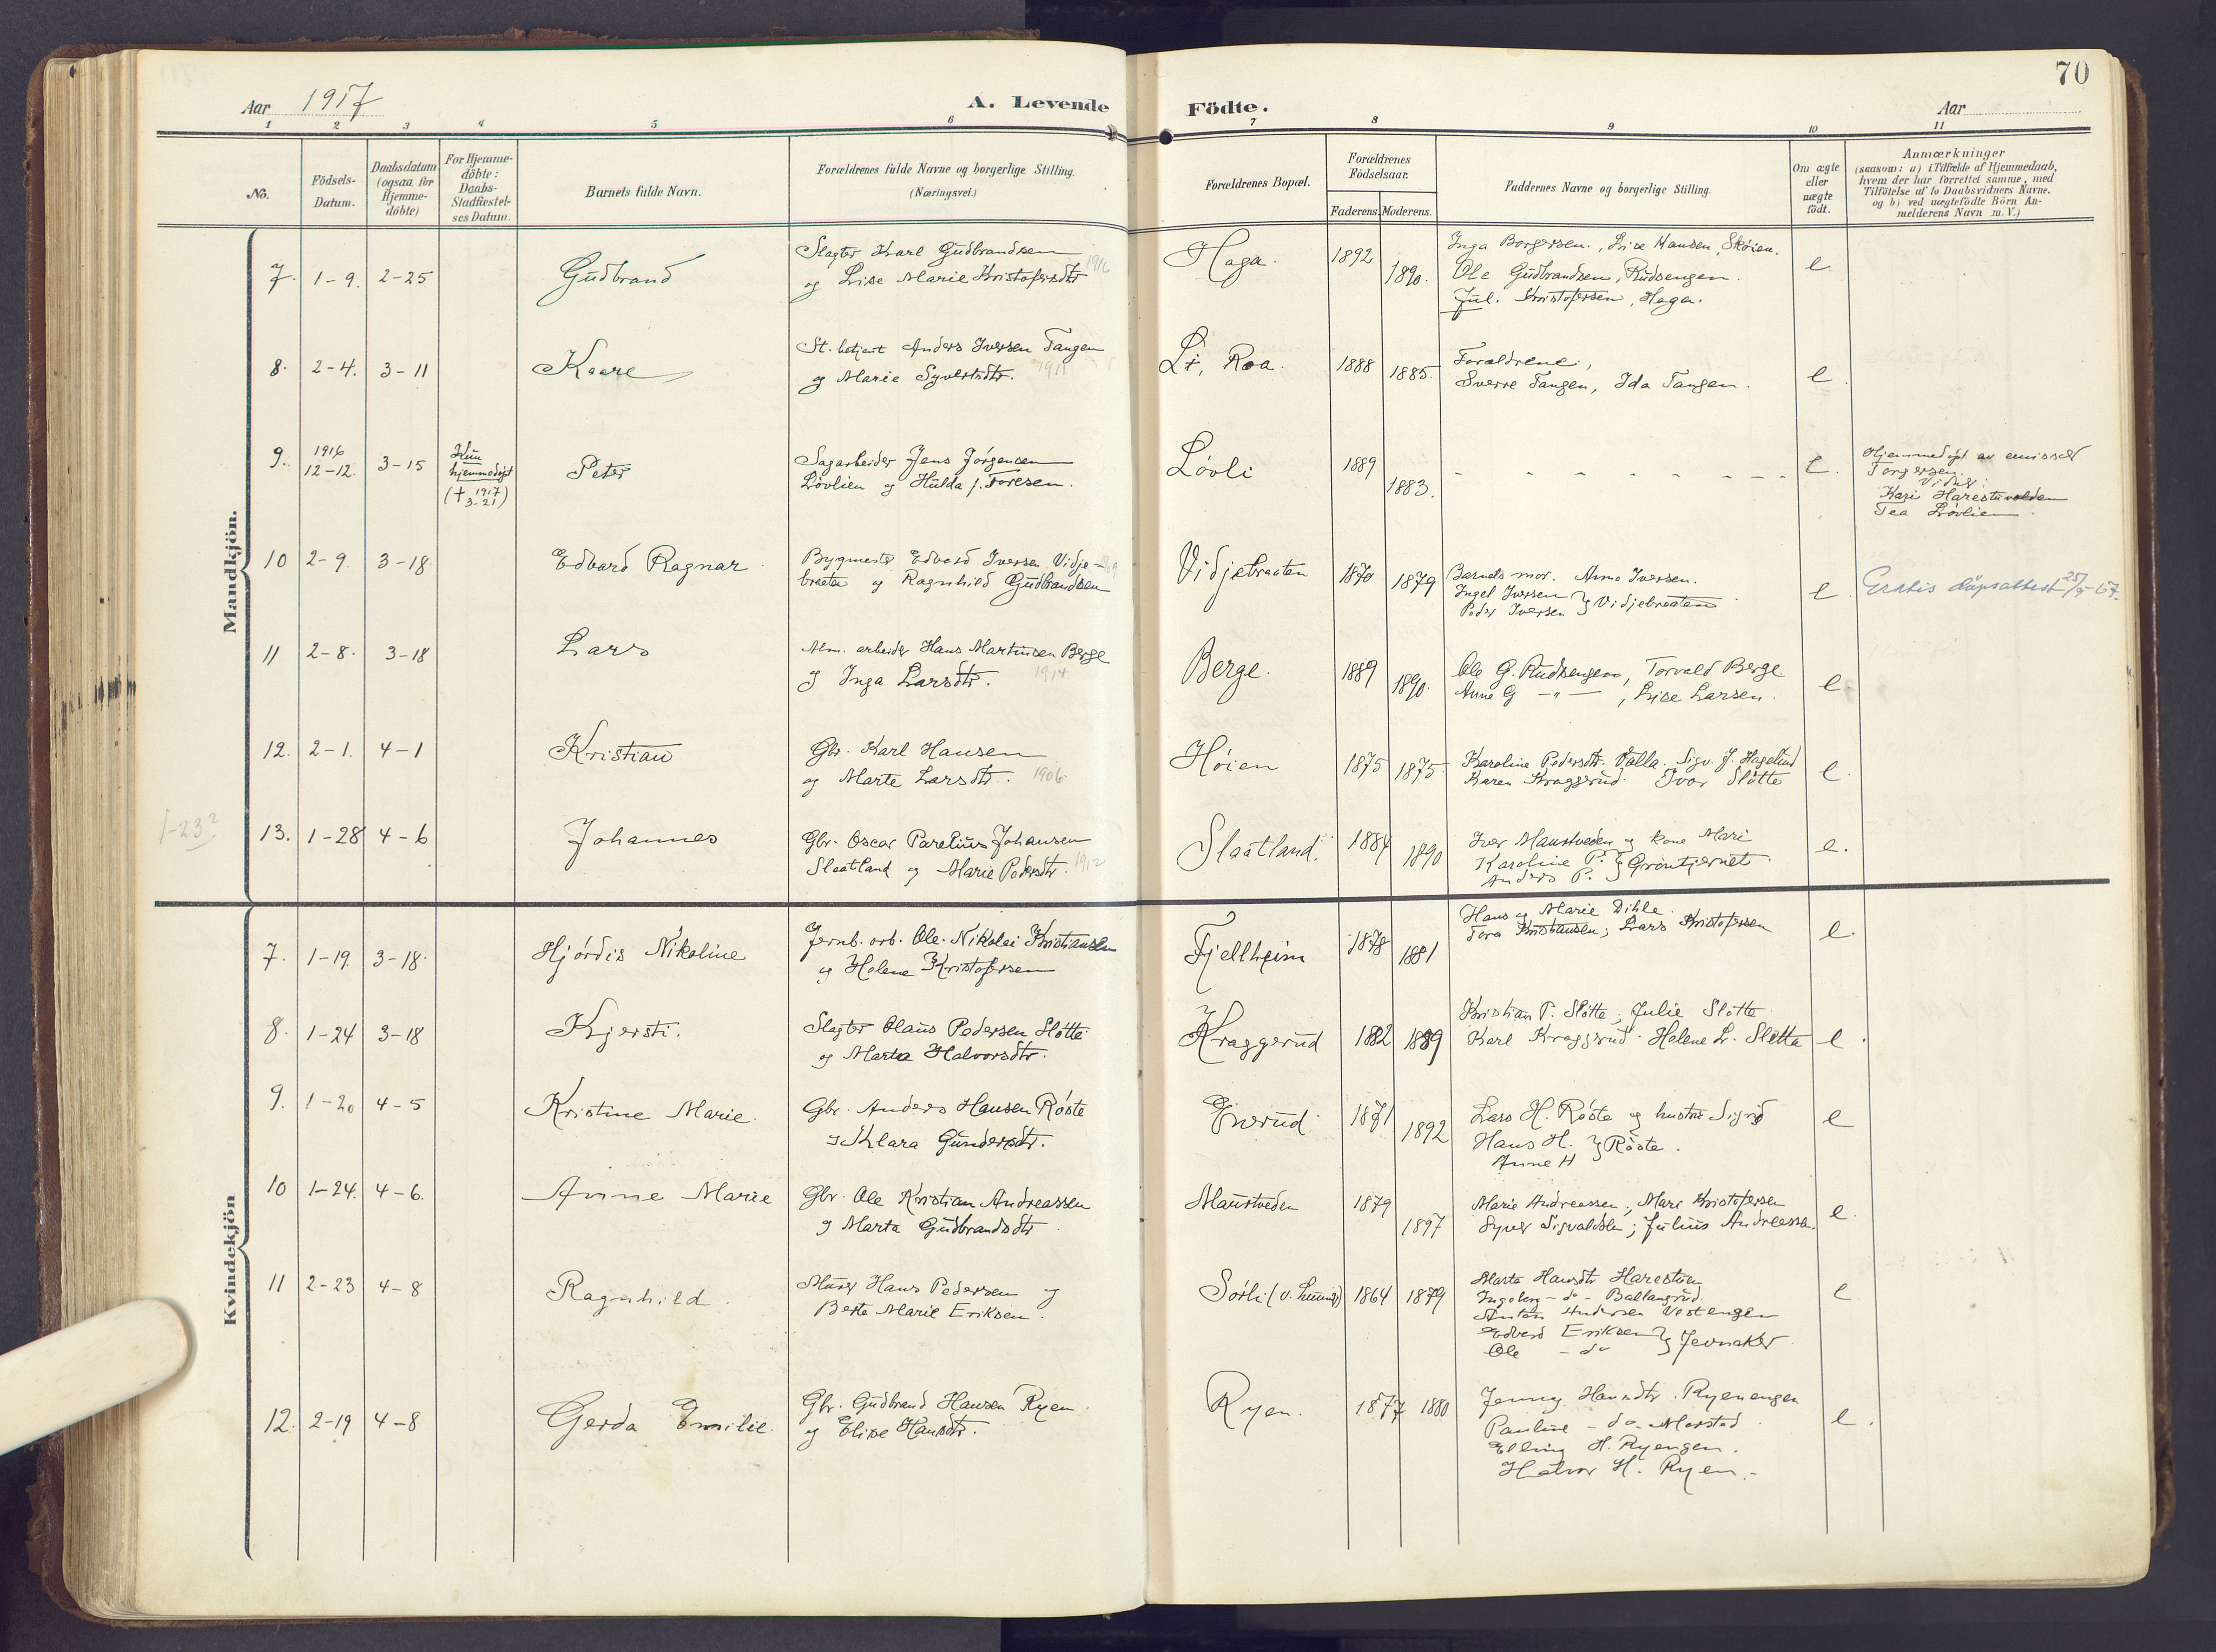 70
Aar 1917
A. Levende Födte.
Aar
1 2 3 4 5 6 7 8 9 10 11
No.
Födsels-Datum.
Daabsdatum (ogsaa for Hjemme-döbte)
For Hjemme-döbte: Daabs-Stadfæstel-ses Datum.
Barnets fulde Navn.
Forældrenes fulde Navne og borgerlige Stilling. (Næringsvei.)
Forældrenes Bopæl.
Forældrenes Födselsaar.
Faderens. Moderens.
Faddernes Navne og borgerlige Stilling.
Om ægte eller uægte födt.
Anmærkninger
(saasom: a) i Tilfælde af Hjemmedaab,
hvem der har forrettet samme, med
Tilföielse af to Daabsvidners Navne.
og b) ved uægtefödte Börn An-
melderens Navn m. V.)
Mandkjön.
7. 1-9. 2-25 Gudbrand
Slagter Karl Gudbrandsen
og Lise Marie Kristofersdtr 1916
Haga. 1892 1890.
Inga Borgersen., Lise Hansen, Skøien.
Ole Gudbrandsen, Rudsengen.
Jul. Kristofersen, Haga.
e.
8. 2-4. 3-11 Kaare
St. betjent Anders Iversen Tangen
og Marie Syverstdtr. 1911
Li, Roa. 1888 1885.
Forældrene,
Sverre Tangen, Ida Tangen.
e.
9. 1916 12-12. 3-15
Kun
hjemmedøpt
(† 1917 3-21)
Peter
Sagarbeider Jens Jörgensen
Løvlien og Hulda f. Toresen.
Løvli 1889 1883.
- - - - - - -
e.
Hjemmedöpt av emissær
Torgersen.
Vidner:
Kari Harestuvolden
Tea Løvlien.
10 2-9. 3-18. Edvard Ragnar
Bygmester Edvard Iversen Vidje-
braaten og Ragnhild Gudbrandsen
Vidjebraaten 1870 1879
Barnets mor. Anna Iversen.
Ingel Iversen
Peder Iversen } Vidjebraaten
e.
Gratis dåpsattest 25/9-67.
11 2-8. 3-18 Lars
Alm. arbeider Hans Martinsen Berge
og Inga Larsdtr. 1914
Berge. 1889 1890.
Ole G. Rudsengen, Torvald Berge
Anne G -"- , Lise Larsen.
e.
12. 2-1. 4-1 Kristian
Gbr. Karl Hansen
og Marte Larsdtr. 1906
Høien 1875 1875.
Karoline Pedersdtr. Valla. Sigv. J. Hagelund
Karen Kraggerud. Ivar Slåtte
e.
1-23?
13. 1-28 4-6 Johannes
Gbr. Oscar Parelius Johansen
Slaatland og Marie Pedersdtr. 1912
Slaatland. 1884 1890
Iver Maustveden og kone Mari
Karoline P.
Anders P. } Grøntjernet.
e.
Kvindekjön
7. 1-19. 3-18. Hjördis Nikoline
Jernb. arb. Ole Nikolai Kristiansen
og Helene Kristofersen
Fjellheim 1878 1881
Hans og Marie Dihle.
Tora Kristiansen; Lars Kristofersen
e.
8. 1-24 3-18 Kjersti.
Slagter Olaus Pedersen Slåtte
og Marta Halvorsdtr.
Kraggerud 1882 1889
Kristian P. Slåtte; Julie Slåtte
Karl Kraggerud. Helene L. Sletta
e.
9. 1-20 4-5 Kristine Marie.
Gbr. Anders Hansen Røste
og Klara Gundersdtr.
Enerud 1871 1892
Lars H. Røste og hustru Sigrid
Hans H.
Anne H } Røste.
e
10 1-24. 4-6. Anne Marie
Gbr. Ole Kristian Andreassen
og Marta Gudbrandsdtr
Maustveden 1879 1897
Marie Andreassen; Mari Kristofersen
Syver Sigvaldsen; Julius Andreassen.
e
11 2-23 4-8 Ragnhild.
Murer Hans Pedersen og
Berte Marie Eriksen.
Sørli (v. Lunner) 1864 1879
Marta Hansdtr Harestuen
Ingeborg - do - Ballangrud.
Anton Andersen Vestengen
Edvard Eriksen
Ole - do } Jevnaker
e
12. 2-19 4-8 Gerda Emilie.
Gbr. Gudbrand Hansen Ryen.
og Elise Hansdtr.
Ryen. 1877 1880
Jenny Hansdtr. Ryenengen
Pauline - do - Morstad
Elling H. Ryengen.
Halvor H. Ryen.
e.